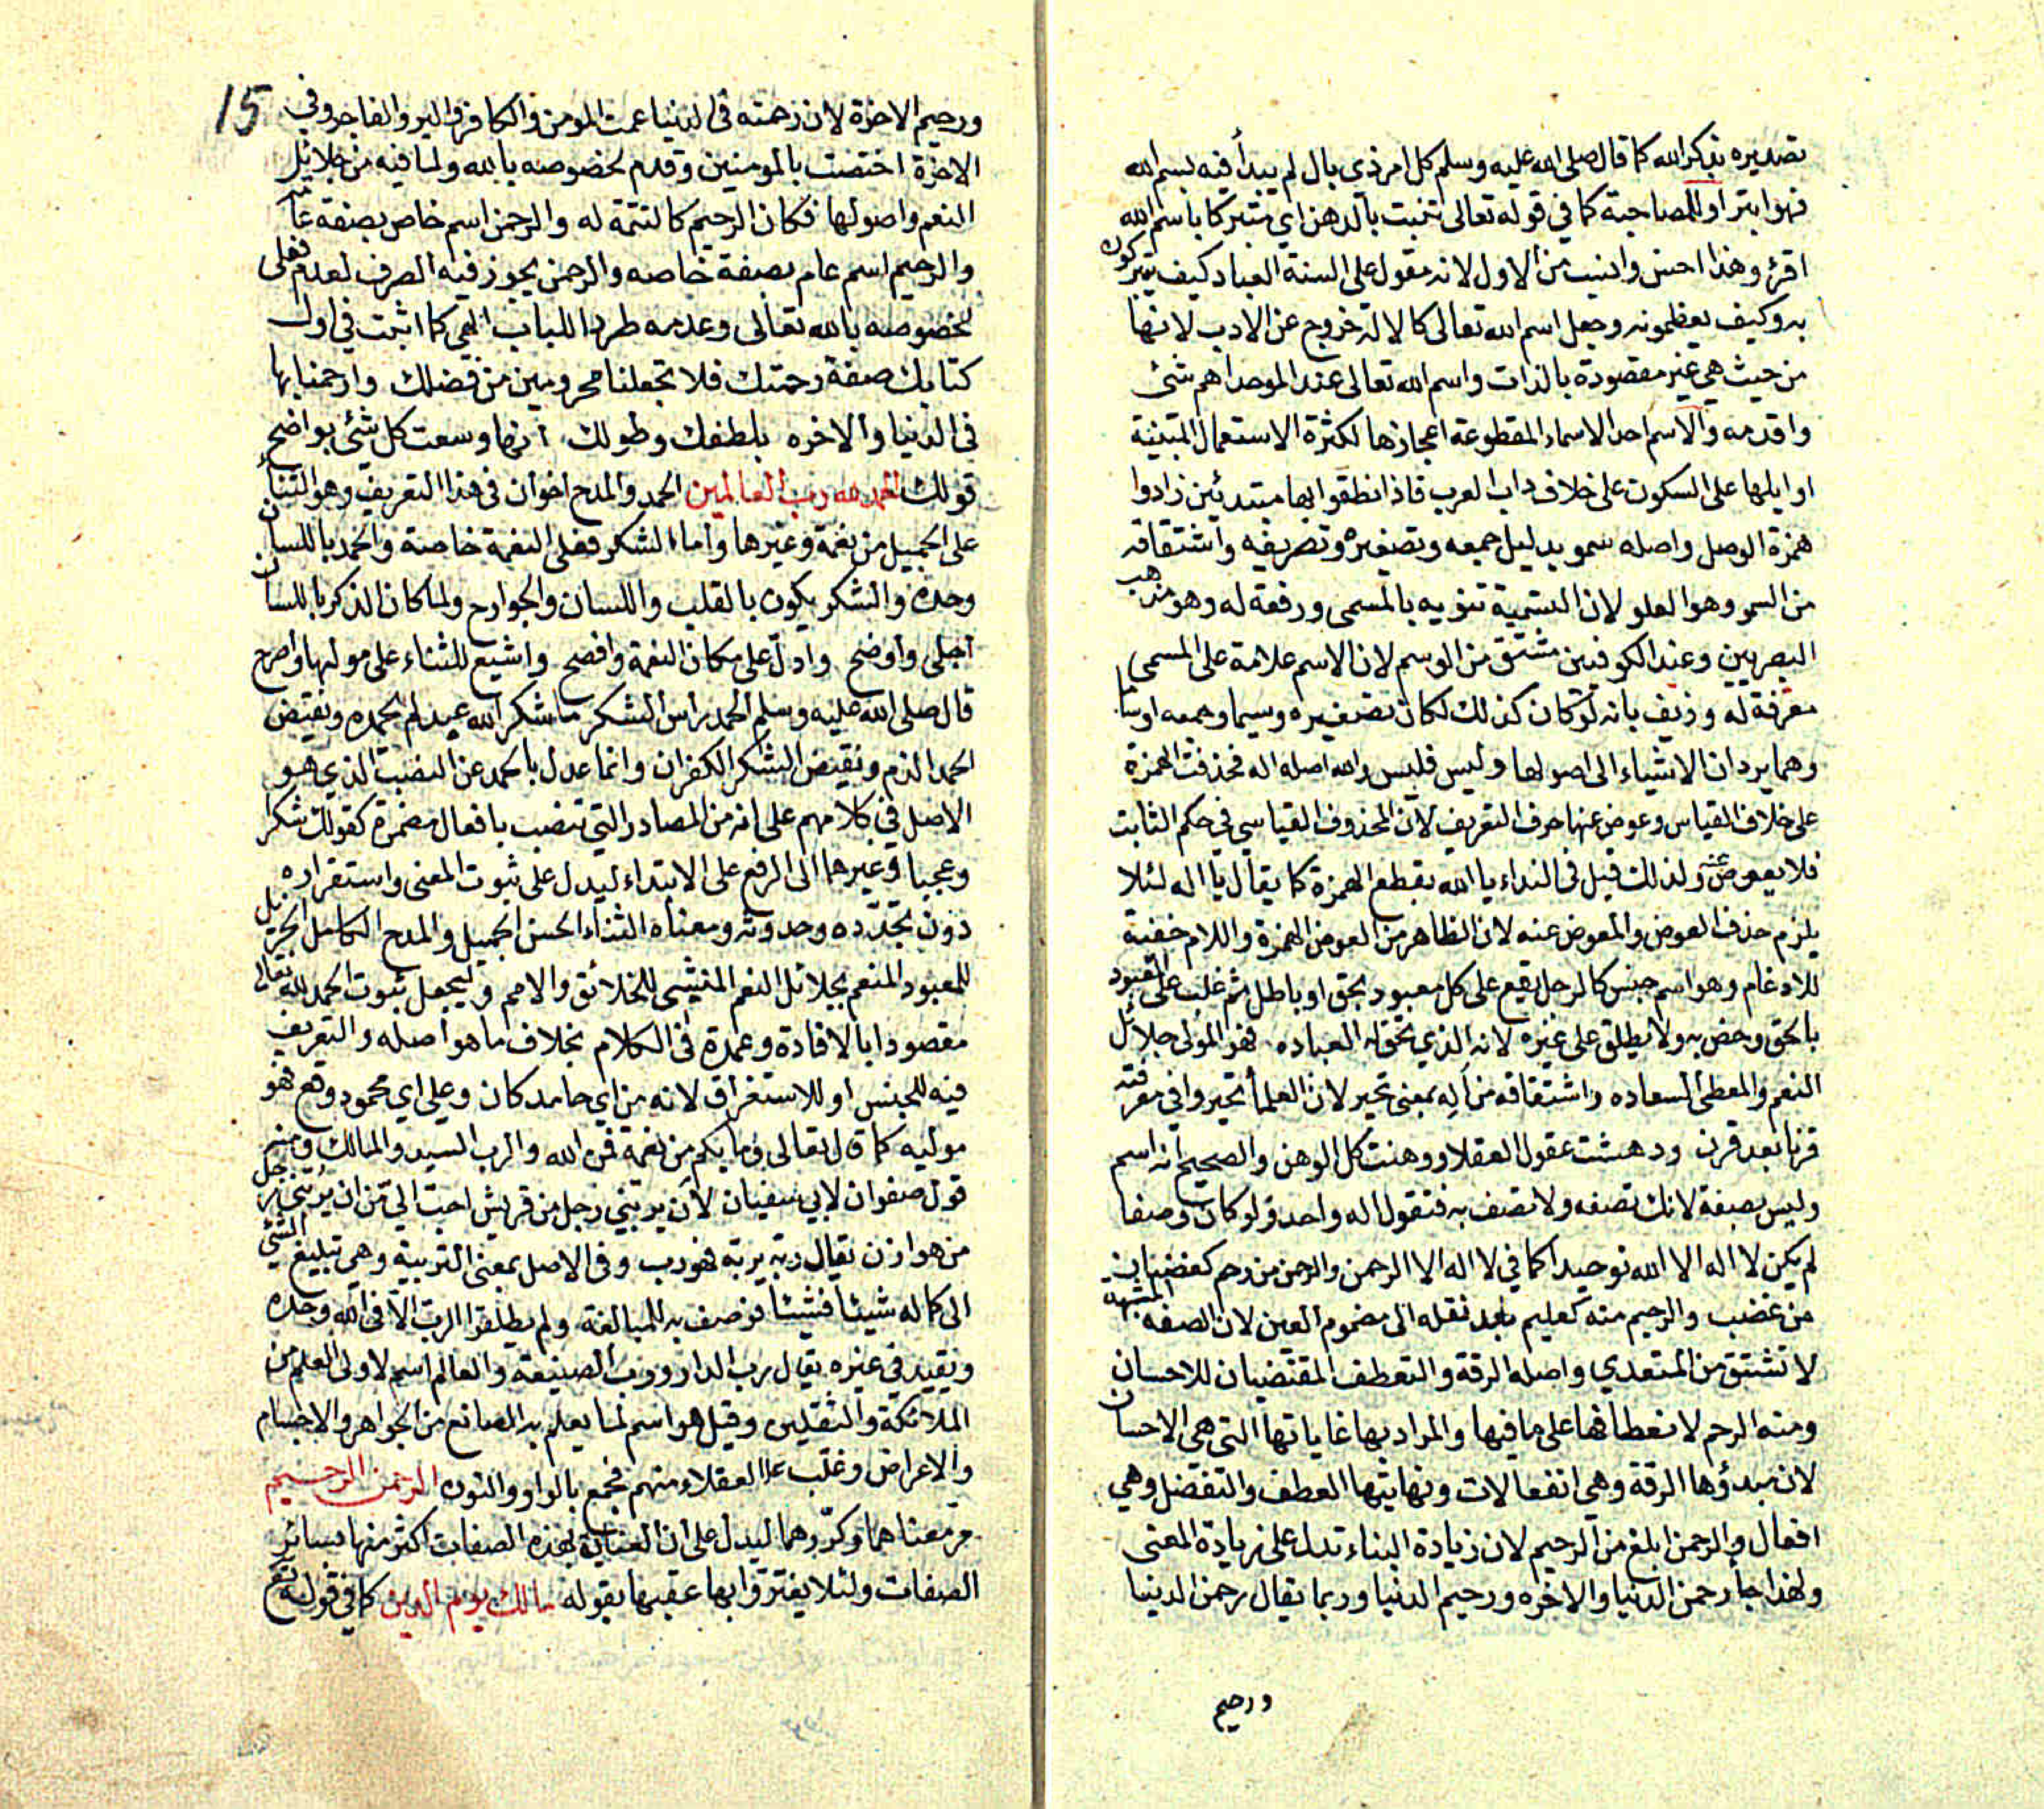 تصديره بذكر الله كما قال صلى الله عليه وسلم كل امر ذي بال لم يبدأ فيه بسم الله
فهو ابتر او للمصاحبة كما في قوله تعالى تنبت بالدهن اي متبركا باسم الله
اقرؤ وهذا احسن وانسب من الاول لانه مقول على السنة العباد كيف يتبركون
به وكيف يعظمونه وجعل اسم الله تعالى كالالة خروج عن الادب لانها
من حيث هي غير مقصودة بالذات واسم الله تعالى عند الموحد اهم شئ
واقدمه والاسم احد الاسماء المقطوعة اعجازها لكثرة الاستعمال المبنية
اوايلها على السكون على خلاف داب العرب فاذا نطقوا بها مبتدئين زادوا
همزة الوصل واصله سمو بدليل جمعه وتصغيره وتصريفه واشتقاقه
من السمو وهو العلو لان التسمية تنويه بالمسمى ورفعة له وهو مذهب
البصريين وعند الكوفيين مشتق من الوسم لان الاسم علامة على المسمى
معرفة له وزيف بانه لو كان كذلك لكان تصغيره وسيما وجمعه اوساما
وهما يردان الاشياء الى اصولها وليس فليس والله اصله اله فحذفت الهمزة
على خلاف القياس وعوض عنها حرف التعريف لان المحذوف القياسي في حكم الثابت
فلا يعوض عنه ولذلك قيل في النداء يا الله بقطع الهمزة كما يقال يا اله لئلا
يلزم حذف العوض والمعوض عنه لان الظاهر من العوض الهمزة واللام خفية
للادغام وهو اسم جنس كالرجل يقع على كل معبود بحق او باطل ثم غلب على المعبود
بالحق وخص به ولا يطلق على غيره لانه الذي تحق له العباده فهو المولى جلائل
النعم والمعطى السعاده واشتقاقه من اَلِه بمعنى تحير لان العلمأ تحيروا في معرفته
قرنا بعد قرن ودهشت عقول العقلاء ووهنت كل الوهن والصحيح انه اسم
وليس بصفة لانك تصفه ولا تصف به فتقول اله واحد ولو كان وصفا
لم يكن لا اله الا الله توحيدا كما في لا اله الا الرحمن والرحمن من رحم كغضبان
من غضب والرحيم منه كعليم بعد نقله الى مضموم العين لان الصفه المشبهه
لا تشتق من المتعدي واصله الرقة والتعطف المقتضيان للاحسان
ومنه الرحم لانعطافها على ما فيها والمراد بها غاياتها التي هي الاحسان
لان مبدؤها الرقة وهي انفعالات ونهايتها العطف والتفضل وهي
افعال والرحمن ابلغ من الرحيم لان زيادة البناء تدل على زيادة المعنى
ولهذا جا رحمن الدنيا والاخره ورحيم الدنيا وربما يقال رحمن الدنيا
ورحيم
15
ورحيم الاخرة لان رحمته في الدنيا عمت المومن والكافر والبر والفاجر وفي
الاخرة اختصت بالمومنين وقدم لخصوصه بالله ولما فيه من جلائل
النعم واصولها فكان الرحيم كالتتمة له والرحمن اسم خاص بصفة عامه
والرحيم اسم عام بصفة خاصه والرحمن يجوز فيه الصرف لعدم فعلى
لخصوصه بالله تعالى وعدمه طردا للباب الهي كما اثبت في اول
كتابك صفة رحمتك فلا تجعلنا محرومين من فضلك وارحمنا بها
في الدنيا والاخره بلطفك وطولك انها وسعت كل شئ بواضح
قولك الحمد لله رب العالمين الحمد والمدح اخوان في هذا التعريف وهو الثناء
على الجميل من نعمة وغيرها واما الشكر فعلى النعمة خاصة والحمد باللسان
وحده والشكر يكون بالقلب واللسان والجوارح ولما كان الذكر باللسان
اجلى واوضح وادل على مكان النعمة وافصح واشيع للثناء على موليها واصرح
قال صلى الله عليه وسلم الحمد راس الشكر ما شكر الله عبد لم يحمده ونقيض
الحمد الذم ونقيض الشكر الكفران وانما عدل بالحمد عن النصب الذي هو
الاصل في كلامهم على انه من المصادر التي تنصب بافعال مضمرة كقولك شكرا
وعجبا وغيرهما الى الرفع على الابتداء ليدل على ثبوت المعنى واستقراره
دون تجدده وحدوثه ومعناه الثناء الحسن الجميل والمدح الكامل الجزيل
للمعبود المنعم بجلائل النعم المنشى للخلائق والامم وليجعل ثبوت الحمد لله تعالى
مقصودا بالافادة وعمدة في الكلام بخلاف ما هو اصله والتعريف
فيه للجنس او للاستغراق لانه من اي حامد كان وعلى اي محمود وقع فهو
موليه كما قال تعالى وما بكم من نعمة فمن الله والرب السيد والمالك ومنه
قول صفوان لابي سفيان لأن يربني رجل من قريش احب الي من ان يربني رجل
من هوازن يقال ربه يربه فهو رب وفي الاصل بمعنى التربية وهي تبليغ الشئ
الى كماله شيئا فشيئا توصف به للمبالغة ولم يطلقوا الرب الا في الله وحده
ويقيد في غيره يقال رب الدار ورب الضيعة والعالم اسم لاولى العلم من
الملائكة والثقلين وقيل هو اسم لما يعلم به الصانع من الجواهر والاجسام
والاعراض وغلب على العقلاء منهم فجمع بالواو والنون الرحمن الرحيم
مر معناهما وكررهما ليدل على ان العناية بهذه الصفات اكثر منها بسائر
الصفات ولئلا يغتروا بها عقبها بقوله مالك يوم الدين كما في قوله تع